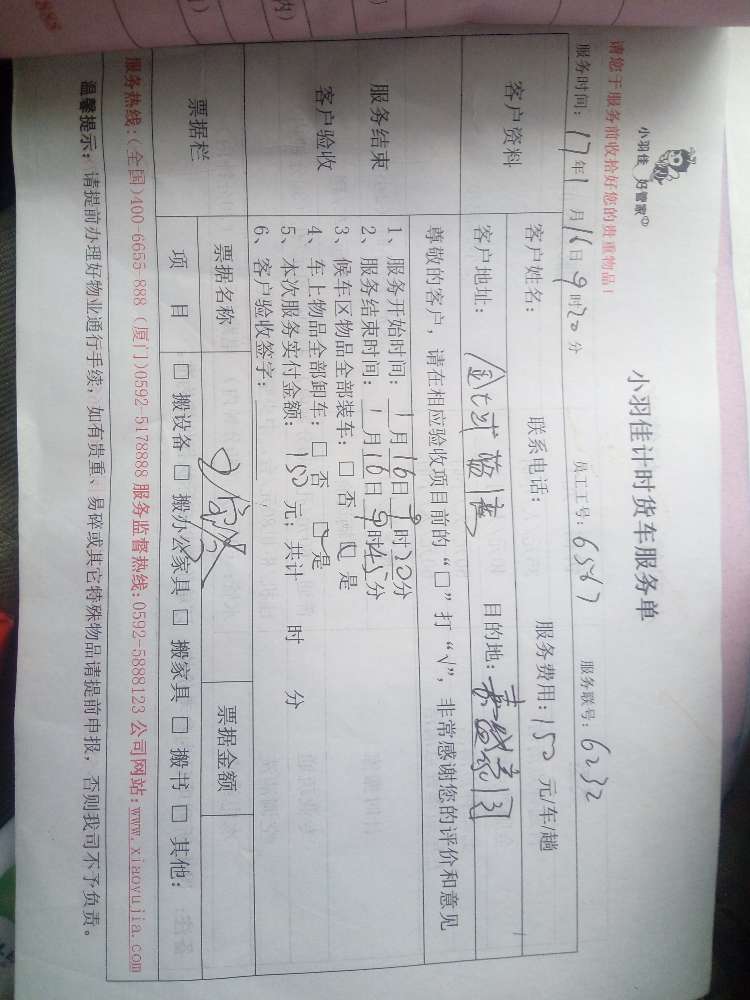 小羽佳 好管家
小羽佳计时货车服务单
请您于服务前收拾好您的贵重物品！
服务时间：17年1月16日9时20分 员工工号：6567 服务联号：6232
客户资料
客户姓名： 联系电话： 服务费用：150元/车/趟
客户地址： 目的地：
尊敬的客户，请在相应验收项目前的“□”打“√”，非常感谢您的评价和意见
服务结束
客户验收
1、服务开始时间：1月16日9时20分
2、服务结束时间：1月16日9时45分
3、候车区物品全部装车：□否 □是
4、车上物品全部卸车：□否 □是
5、本次服务实付金额：150元；共计 时 分
6、客户验收签字：
票据栏
票据名称 票据金额
项 目 □搬设备 □搬办公家具 □搬家具 □搬书 □其他：
服务热线：(全国)400-6655-888（厦门)0592-5178888 服务监督热线：0592-5888123 公司网站：www.xiaoyujia.com
温馨提示：请提前办理好物业通行手续，如有贵重、易碎或其它特殊物品请提前申报，否则我司不予负责。